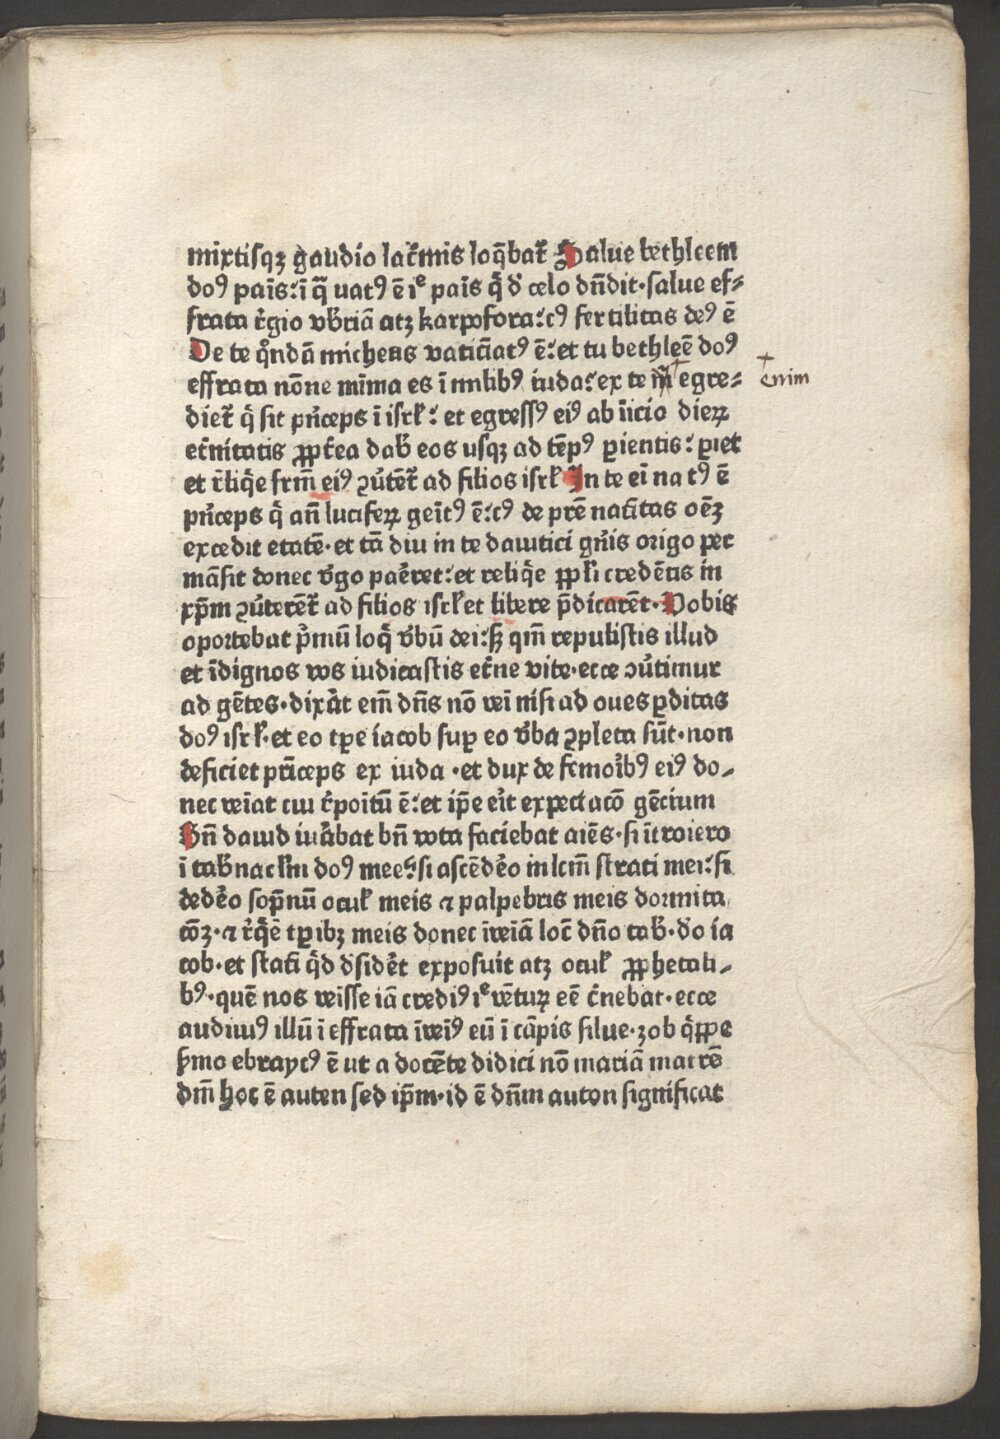 mixtisqꝫ gaudio lac̄mis loq̄bat᷑ Salue bethleem
doꝰ pais̄:ī q̄ uatꝰ ē iͤ pais̄ q̄ d̄ celo dn̄dit·salue ef⸗
frata r̄gio vb̄riā atꝫ karpofora:cꝰ fertilitas deꝰ ē
De te qͦndā micheas vatic̄iatꝰ ē:et tu bethleē doꝰ
effrata nōne mīma es ī mlibꝰ iuda:ex te m̄ egre⸗
enim
diet᷑ q̄ sit pn̄ceps ī isrl̄: et egressꝰ eiꝰ ab īicio dieꝝ
et̄nitatis ꝓpt̄ea dab̄ eos usqꝫ ad temp̄ꝰ ꝑientis:ꝑiet
et r̄liq̄e frm̄ eiꝰ ꝯūtet᷑ ad filios isrl̄ In te eī natꝰ ē
pn̄ceps q̄ an̄ luciferꝝ geīt́ꝰ ē:cꝰ de pr̄e natīitas oēꝫ
excedit etatē·et tā diu in te dauitici gn̄is origo per
māsit donec v̄go paēret:et reliq̄e ppl̄i credētis in
xp̄m ꝯūterēt᷑ ad filios isrl̄ et libere p̄dicarēt·Vobis
oportebat p̄mū loq̄ v̄bū dei:sꝫ qm̄ repulistis illud
et īdignos vos iudicastis et̄ne vite·ecce ꝯūtimur
ad gētes·dixāt em̄ dn̄s nō veī nisi ad oues ꝑditas
doꝰ isrl̄·et eo tp̄e iacob suꝑ eo v̄ba ꝯpleta sūt·non
deficiet pr̄iceps ex iuda·et dux de femoībꝰ eiꝰ do⸗
nec veīat cui r̄poitū ē:et ip̄e eīt expectacō gēcium
Bn̄ dauid iuābat bn̄ vota faciebat aiēs·si ītroiero
ī tab̄naclm̄ doꝰ mee:si ascēdēo in lcm̄ strati mei:si
dedēo sop̄nū ocul̄ meis ⁊ palpebris meis dormita
cōꝫ·⁊ r̄q̄ē tꝑibꝫ meis donec īveiā loc̄ dn̄o tab̄·d̄o ia
cob·et stati q̄d d̄sidēt exposuit atꝫ ocul̄ ꝓphetali⸗
bꝰ·quē nos veisse iā crediꝰ iͤ vētuꝝ eē c̄nebat·ecce
audiuiꝰ illū ī effrata īveīꝰ eū ī cāpis silue·zob q̄ppe
s̄mo ebraycꝰ ē ut a docēte didici nō mariā matrē
dm̄ hoc ē auten sed ip̄m·id ē dn̄m auton significat